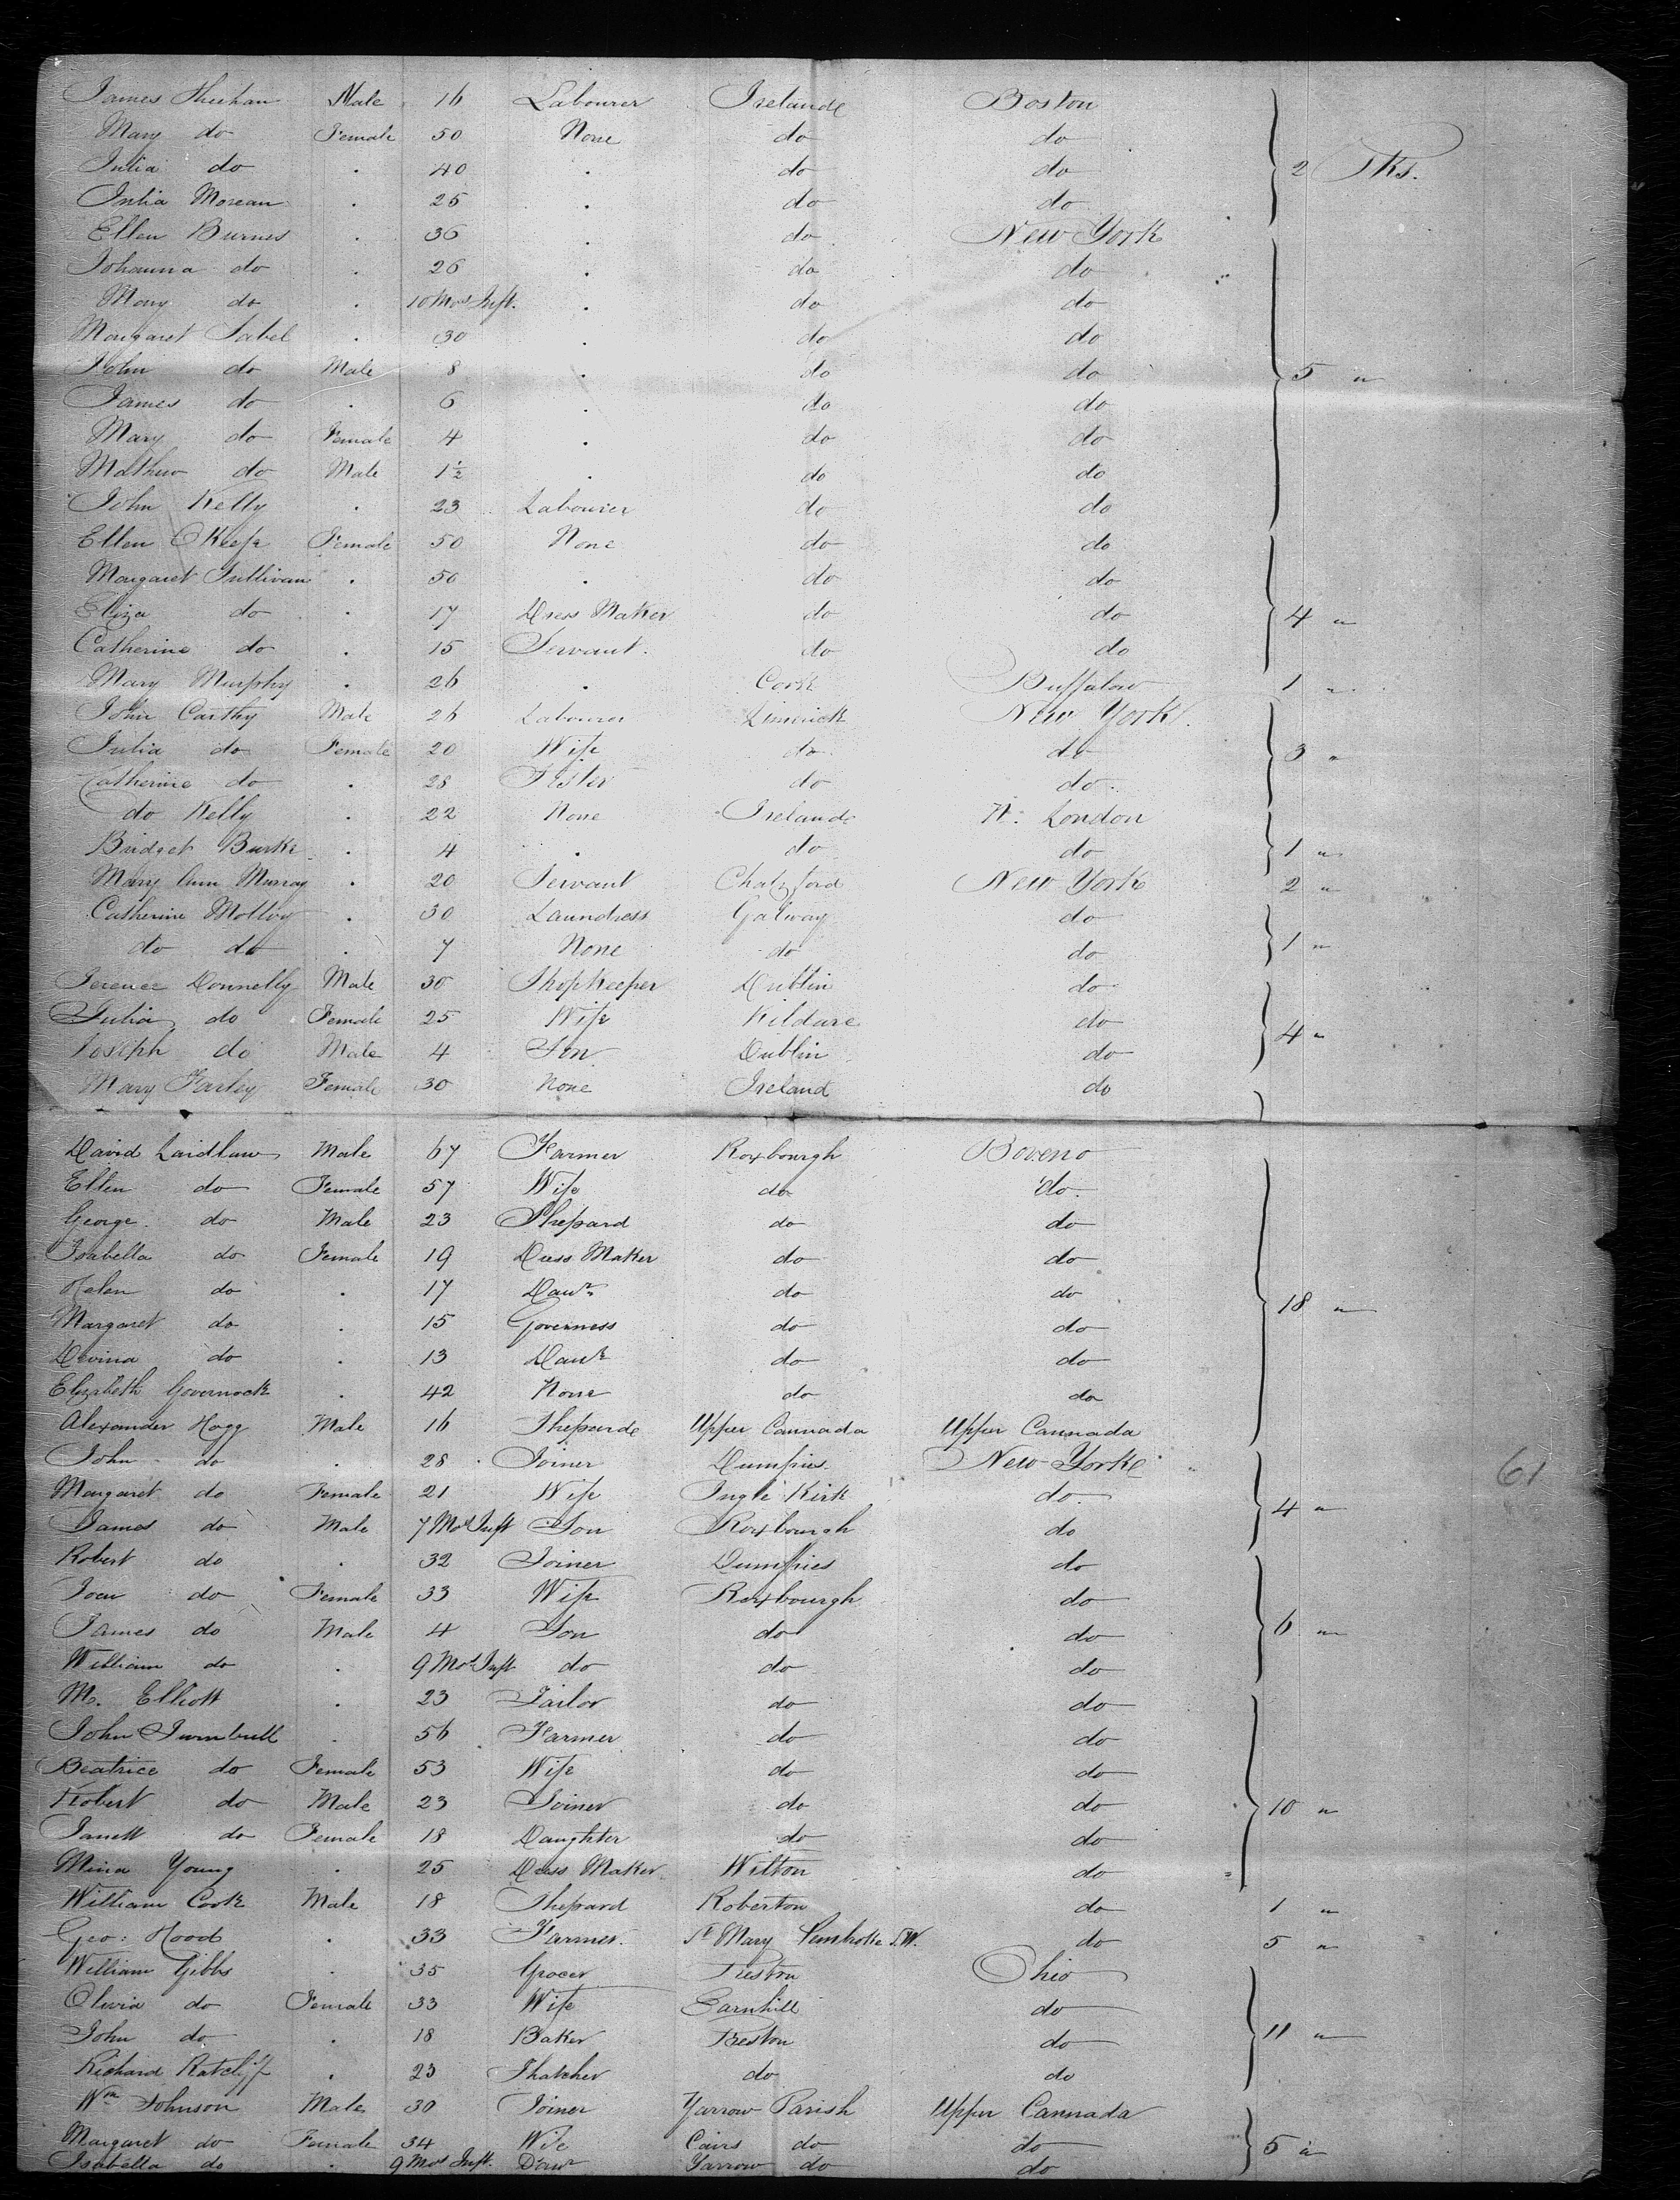 James Sheehan Male 16 Labourer Ireland Boston
Mary do Female 50 None do do
Julia do . 40 . do do 2 Pks.
Julia Morean . 25 . do do
Ellen Burnes . 36 . do New York
Johanna do . 26 . do do
Mary do . 10 Mos Inft. . do do
Margaret . 30 . do do
John do Male 8 . do do 5 "
James do . 6 . do do
Mary do Female 4 . do do
Mathew do Male 1½ . do do
John Kelly . 23 Labourer do do
Ellen O Keefe Female 50 None do do
Margaret Sullivan . 50 . do do
Eliza do . 17 Dress Maker do do 4 "
Catherine do . 15 Servant. do do
Mary Murphy . 26 . Cork Buffalow 1 "
John Carthy Male 26 Labourer Limerick New York.
Julia do Female 20 Wife do do 3 "
Catherine do . 28 Sister do do.
do Kelly . 22 None Ireland N. London
Bridget Burke . 4 . do do 1 "
Mary Ann Murray . 20 Servant New York 2 "
Catherine Molloy . 30 Laundress Galway do
do do . 7 None do do 1 "
Terence Donnelly Male 30 Shopkeeper Dublin do
Julia do Female 25 Wife Kildare do
Joseph do Male 4 Son Dublin do 4 "
Mary Farley Female 30 None Ireland do
David Laidlaw Male 67 Farmer Roxbourgh Boveno
Ellen do Female 57 Wife do do.
George do Male 23 Shepard do do
Isabella do Female 19 Dress Maker do do
Helen do . 17 Daur do do 18 "
Margaret do . 15 Governess do do
Devina do . 13 Daur do do
Elizabeth Governock . 42 None do do
Alexander Hogg Male 16 Sheparde Upper Cannada Upper Cannada
John do . 28 Joiner Dumfries New York 61
Margaret do Female 21 Wife Ingle Kirk do 4 "
James do Male 7 Mos Inft Son Roxbourgh do
Robert do . 32 Joiner Dumfries do
Jean do Female 33 Wife Roxbourgh do
James do Male 4 Son do do 6 "
William do . 9 Mos Inft do do do
M. Elliott . 23 Tailor do do
John Turnbull . 56 Farmer do do
Beatrice do Female 53 Wife do do
Robert do Male 23 Joiner do do 10 "
Janett do Female 18 Daughter do do
Mina Young . 25 Dress Maker Wilton do
William Cook Male 18 Shepard Roberton do 1 "
Geo: Hood . 33 Farmer. St Mary do 5 "
William Gibbs . 35 Grocer Preston Ohio
Olivia do Female 33 Wife Earnhill do
John do . 18 Baker Preston do 11 "
Richard Ratcliff . 23 Thatcher do do
Wm Johnson Male 30 Joiner Yarrow Parish Upper Cannada
Margaret do Female 34 Wife Cairs do do 5 "
Isabella do . 9 Mos Inft. Daur Yarrow do do